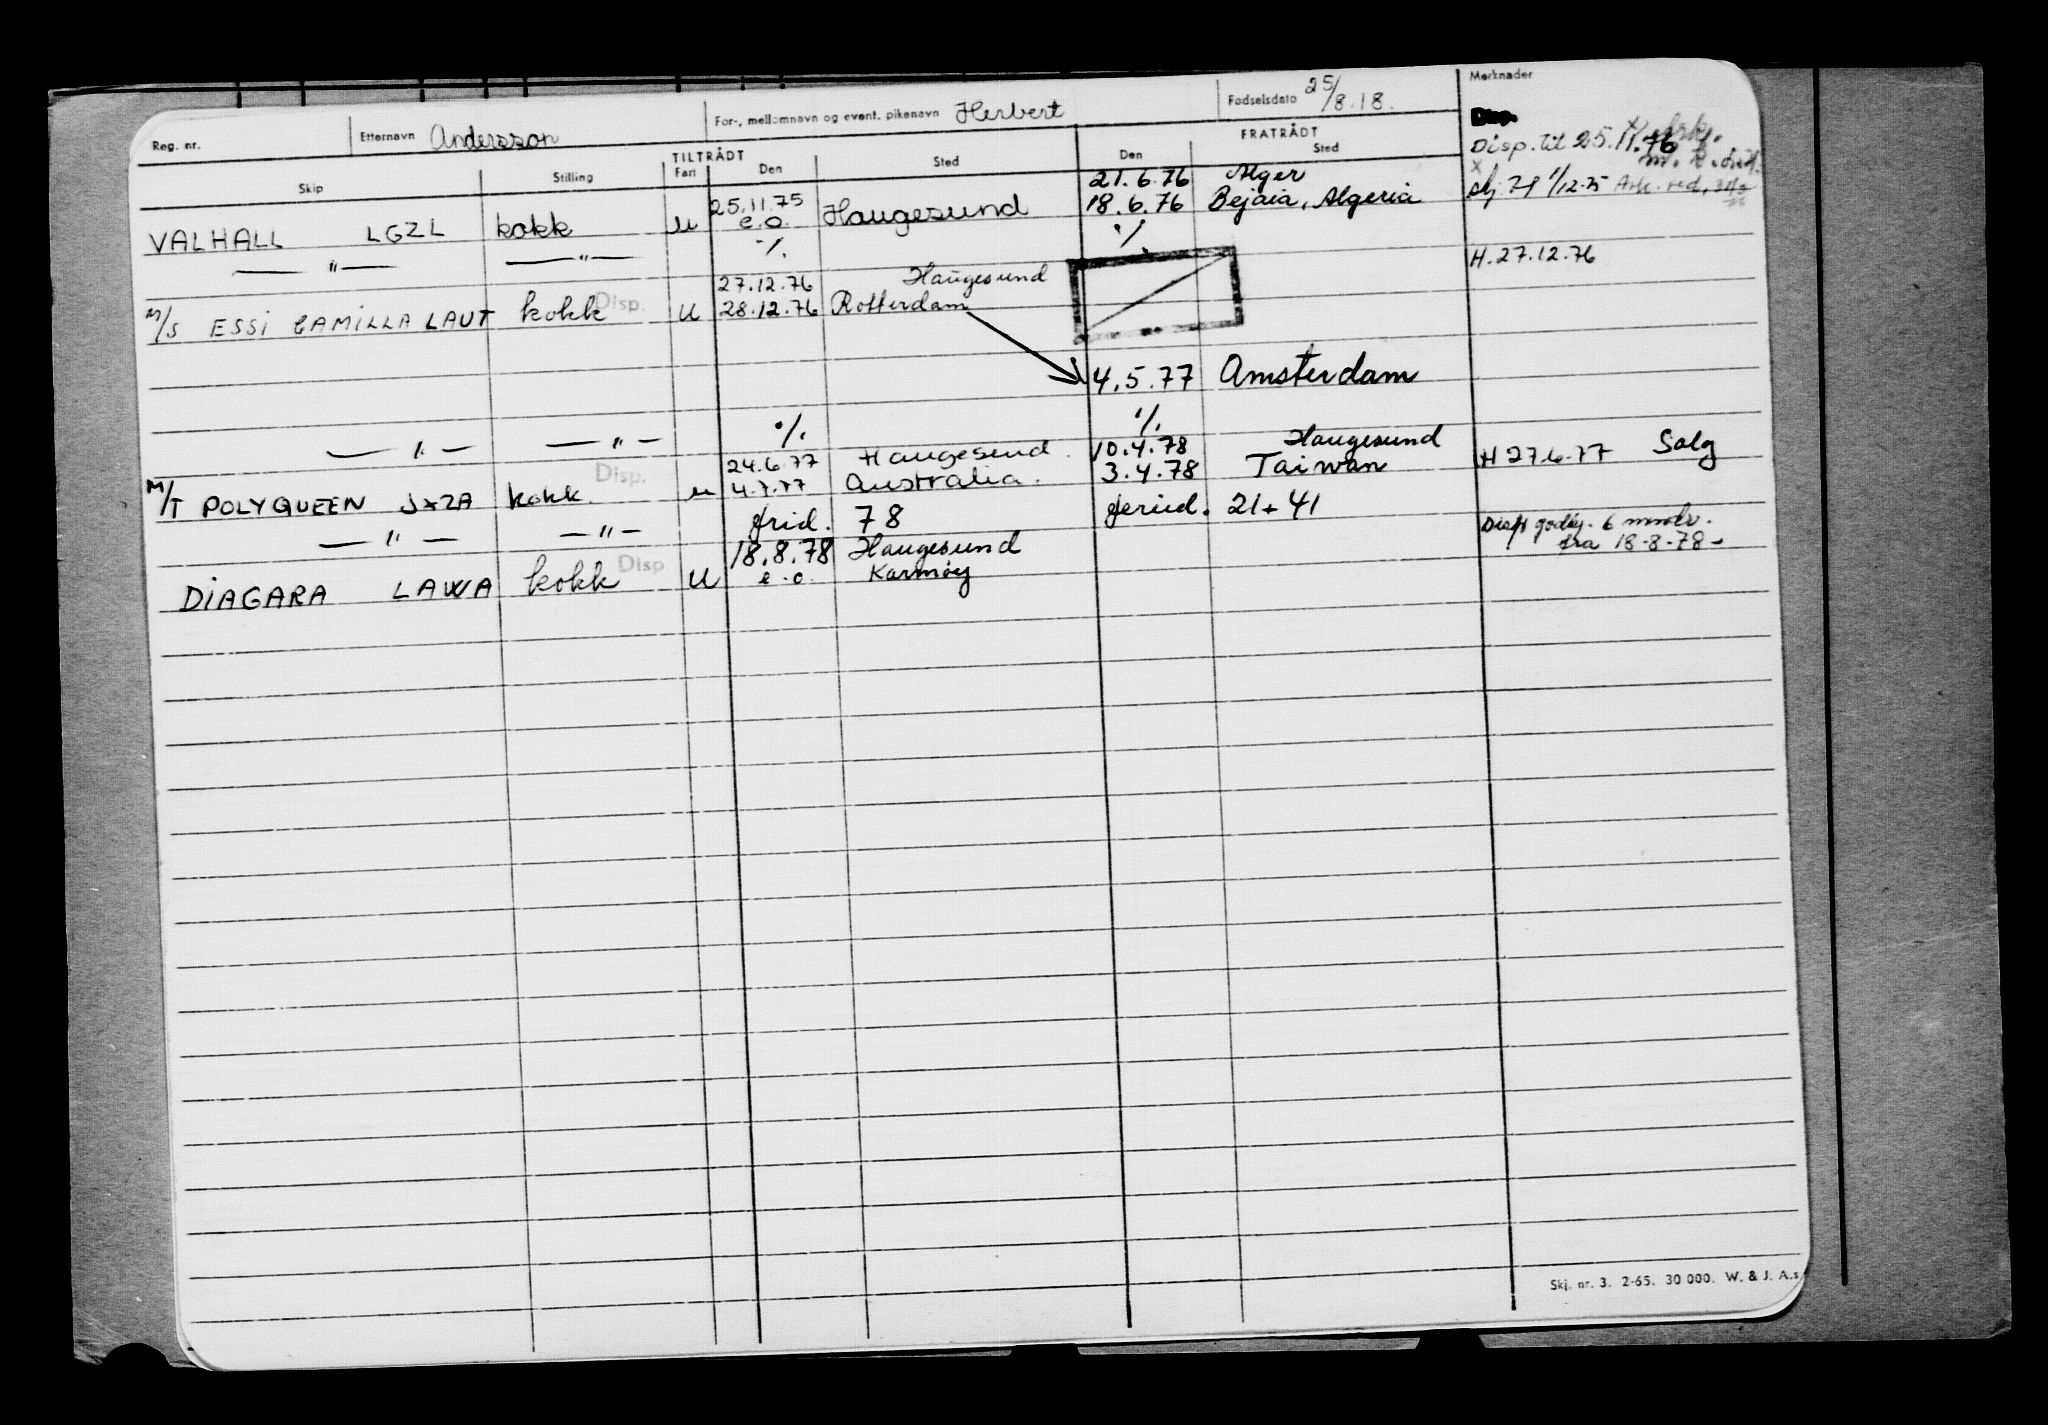 Reg. nr. Etternavn Andersson For-, mellomnavn og event. pikenavn Herbert Fødselsdato 25/8.18. Merknader
TILTRÅDT FRATRÅDT
Skip Stilling Fart Den Sted Den Sted
Disp.
Disp. til 25.11.76
25.11.75 21.6.76 Alger
VALHALL LGZL kokk u e.o. Haugesund 18.6.76 Bejaia, Algeria
1/12-75
— " — — " — ·/. ·/.
H. 27.12.76
27.12.76 Haugesund
M/S ESSI CAMILLA LAUT kokk Disp. U 28.12.76 Rotterdam
4.5.77 Amsterdam
— " — — " — ·/. ·/.
24.6.77 Haugesund. 10.4.78 Haugesund
M/T POLYQUEEN JXZA kokk. Disp. u 4.7.77 Australia. 3.4.78 Taiwan H 27.6.77 Salg
— " — — " — frid. 78 21+41
6
fra 18-8-78-
18.8.78 Haugesund
DIAGARA LAWA kokk Disp U e.o. Karmøy
Skj. nr. 3. 2-65. 30 000. W. & J. A.s